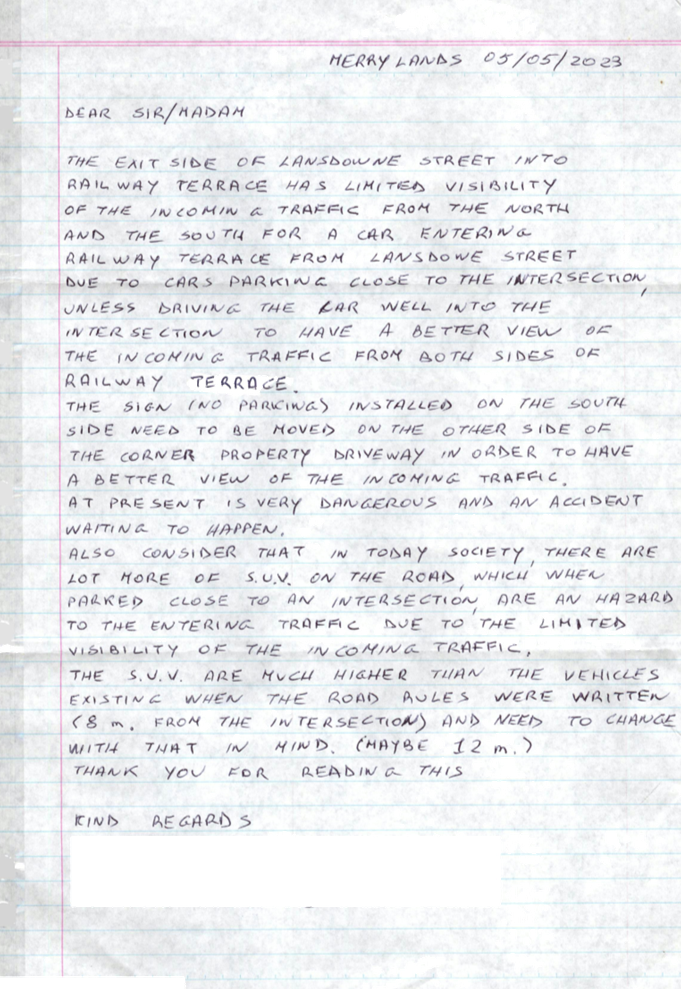 MERRYLANDS 05/05/2023
DEAR SIR/MADAM
THE EXIT SIDE OF LANSDOWNE STREET INTO
RAILWAY TERRACE HAS LIMITED VISIBILITY
OF THE INCOMING TRAFFIC FROM THE NORTH
AND THE SOUTH FOR A CAR ENTERING
RAILWAY TERRACE FROM LANSDOWE STREET
DUE TO CARS PARKING CLOSE TO THE INTERSECTION,
UNLESS DRIVING THE CAR WELL INTO THE
INTERSECTION TO HAVE A BETTER VIEW OF
THE INCOMING TRAFFIC FROM BOTH SIDES OF
RAILWAY TERRACE.
THE SIGN (NO PARKING) INSTALLED ON THE SOUTH
SIDE NEED TO BE MOVED ON THE OTHER SIDE OF
THE CORNER PROPERTY DRIVEWAY IN ORDER TO HAVE
A BETTER VIEW OF THE INCOMING TRAFFIC.
AT PRESENT IS VERY DANGEROUS AND AN ACCIDENT
WAITING TO HAPPEN.
ALSO CONSIDER THAT IN TODAY SOCIETY, THERE ARE
LOT MORE OF S.U.V. ON THE ROAD, WHICH WHEN
PARKED CLOSE TO AN INTERSECTION, ARE AN HAZARD
TO THE ENTERING TRAFFIC DUE TO THE LIMITED
VISIBILITY OF THE INCOMING TRAFFIC,
THE S.U.V. ARE MUCH HIGHER THAN THE VEHICLES
EXISTING WHEN THE ROAD RULES WERE WRITTEN
(8 m. FROM THE INTERSECTION) AND NEED TO CHANGE
WITH THAT IN MIND. (MAYBE 12 m.)
THANK YOU FOR READING THIS
KIND REGARDS